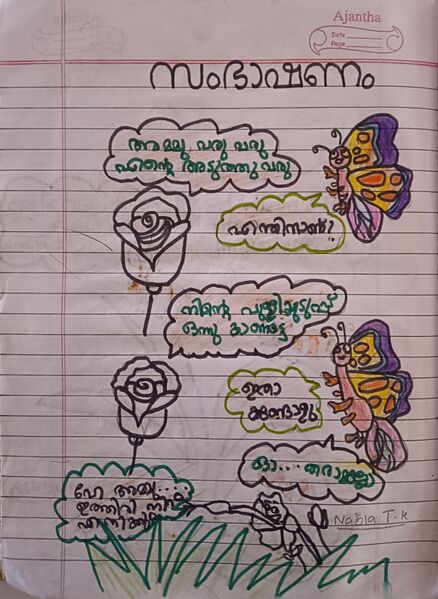 Ajantha
Date
Page
സംഭാഷണം
അമ്മു വരൂ വരൂ
എന്റെ അടുത്തു വരൂ
എന്തിനാണ്?
നിന്റെ പുള്ളിയുടുപ്പ്
ഒന്നു കാണട്ടെ
ഇതാ
കണ്ടോളൂ
ഓ.... തരാമല്ലോ
ഹേ അമ്മു...
ഇത്തിരി
Nahla T.K